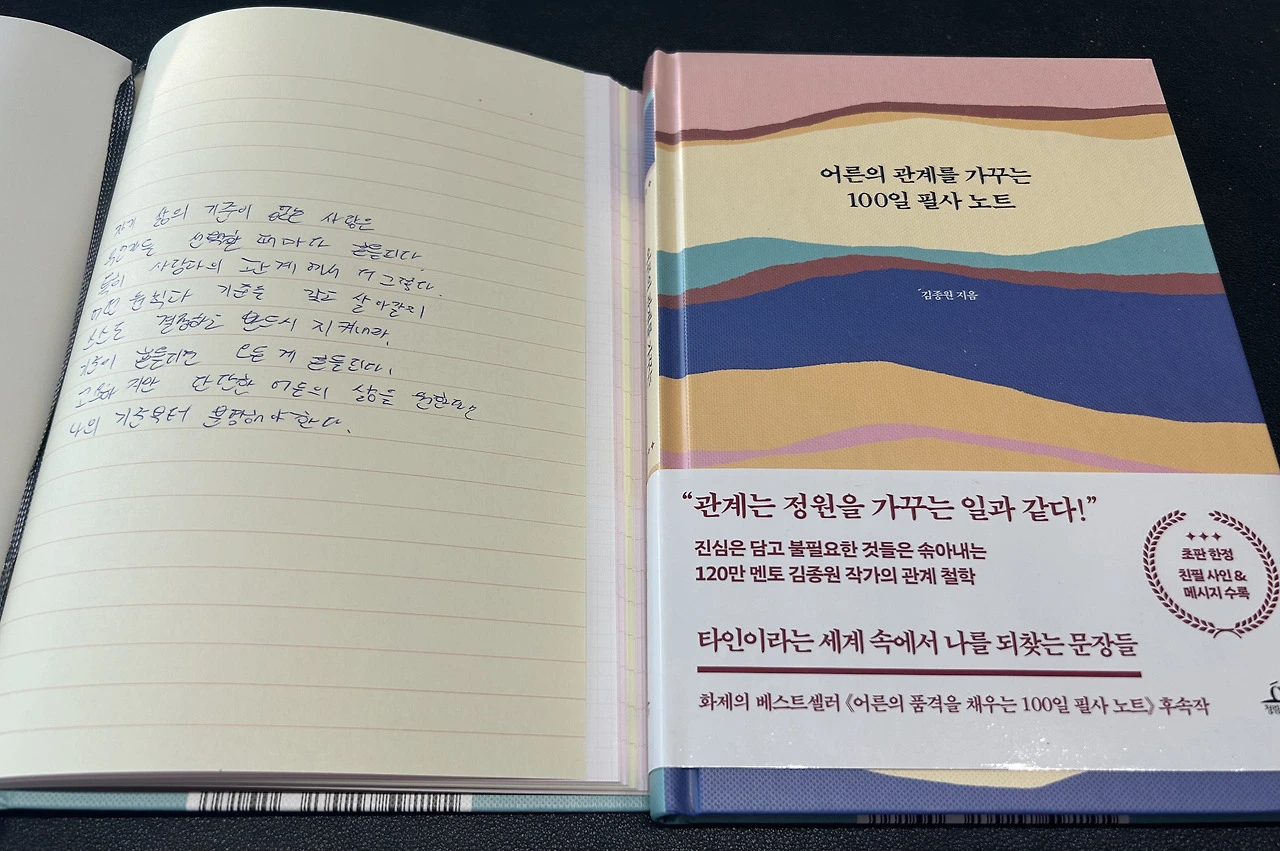 자기 삶의 기준이 없는 사람은
무언가를 선택할 때마다 흔들린다.
특히 사람과의 관계에서 더 그렇다.
어떤 원칙과 기준을 갖고 살아갈지
스스로 결정하고 반드시 지켜내라.
기준이 흔들리면 모든 게 흔들린다.
고요하지만 단단한 어른의 삶을 원한다면
나의 기준부터 분명해야 한다.
어른의 관계를 가꾸는
100일 필사 노트
김종원 지음
“관계는 정원을 가꾸는 일과 같다!”
진심은 담고 불필요한 것들은 솎아내는
120만 멘토 김종원 작가의 관계 철학
초판 한정
친필 사인 &
메시지 수록
타인이라는 세계 속에서 나를 되찾는 문장들
화제의 베스트셀러 《어른의 품격을 채우는 100일 필사 노트》 후속작